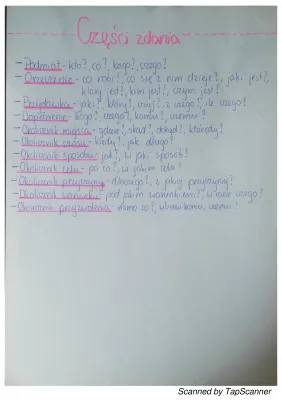 Części zdania
- Podmiot - kto?, co?, kogo?, czego?
- Orzeczenie - co robi?, co się z nim dzieje?, jaki jest?,
kim jest?, czym jest?
- Przydawka - jaki?, który?, czyj?, z czego?, ile czego?
- Dopełnienie - kogo?, czego?, komu?, czemu?
- Okolicznik miejsca - gdzie?, skąd?, dokąd?, którędy?
- Okolicznik czasu - kiedy?, jak długo?
- Okolicznik sposobu - jak?, w jaki sposób?
- Okolicznik celu - po co?, w jakim celu?
- Okolicznik przyczyny - dlaczego?, z jakiej przyczyny?
- Okolicznik warunku - pod jakim warunkiem?, w razie czego?
- Okolicznik przyzwolenia - mimo co?, wbrew komu, czemu?
Scanned by TapScanner